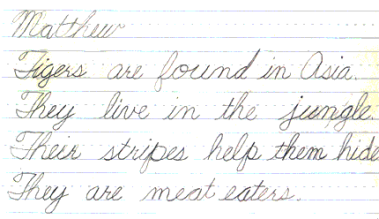 Matthew
Tigers are found in Asia.
They live in the jungle.
Their stripes help them hide
They are meat eaters.